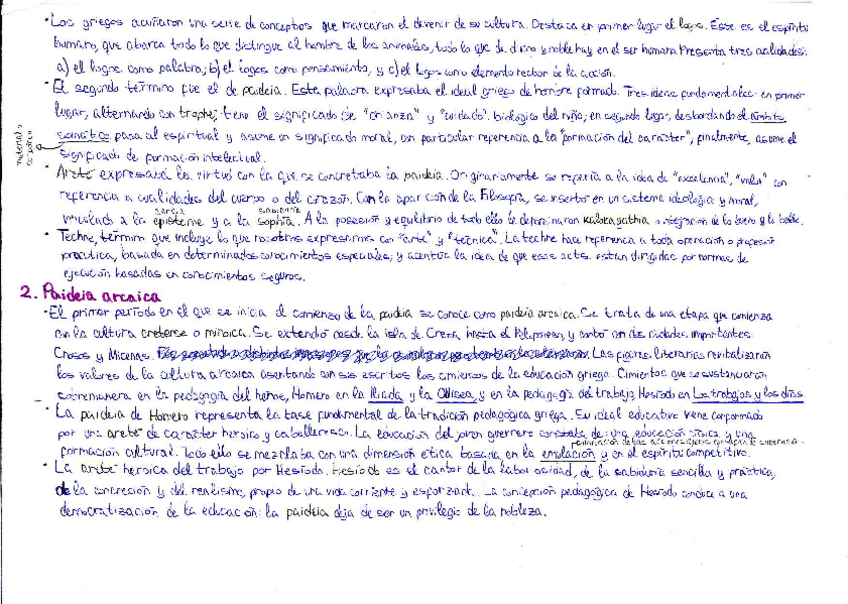 · Los griegos acuñaron una serie de conceptos que marcaron el devenir de su cultura. Destaca en primer lugar el logos. Este es el espíritu
humano, que abarca todo lo que distingue al hombre de los animales, todo lo que de divino y noble hay en el ser humano. Presenta tres realidades:
a) el logos como palabra; b) el logos como pensamiento, y c) el logos como elemento rector de la acción.
· El segundo término fue el de paideia. Esta palabra expresaba el ideal griego de hombre formado. Tres ideas fundamentales: en primer
lugar, alternando con trophe, tiene el significado de "crianza" y "cuidado" biológico del niño; en segundo lugar, desbordando el ámbito
somático pasa al espiritual y asume un significado moral, con particular referencia a la "formación del carácter"; finalmente, asume el
significado de formación intelectual.
material o
corpóreo
· Areté expresaba las virtud con la que se concretaba la paideia. Originariamente se refería a la idea de "excelencia", "valor" con
referencia a cualidades del cuerpo o del corazón. Con la aparición de la Filosofía, se insertó en un sistema ideológico y moral,
ciencia sabiduría
vinculado a la episteme y a la sophia. A la posesión y equilibrio de todo ello le denominaron kalokagathia o integración de lo bueno y lo bello.
· Techne, término que incluye lo que nosotros expresamos con "arte" y "técnica". La techne hace referencia a toda operación o
práctica, basada en determinados conocimientos especiales; y acentúa la idea de que esos acts. están dirigidas por normas de
ejecución basadas en conocimientos seguros.
2. Paideia arcaica
· El primer período en el que se inicia el comienzo de la paideia se conoce como paideia arcaica. Se trata de una etapa que comienza
con la cultura cretense o minoica. Se extendió desde la isla de Creta hasta el Peloponeso, y contó con dos ciudades importantes:
Cnosos y Micenas. Las figuras literarias revitalizaron
los valores de la cultura arcaica asentando con sus escritos los cimientos de la educación griega. Cimientos que se sustanciaron
sobremanera en la pedagogía del héroe, Homero en la Iliada y la Odisea, y en la pedagogía del trabajo, Hesíodo en Los trabajos y los días.
· La paideia de Homero representa la base fundamental de la tradición pedagógica griega. Su ideal educativo viene conformado
por una areté de carácter heroico y caballeresco. La educación del joven guerrero constaba de: una educación física y una
formación cultural. Todo ello se mezclaba con una dimensión ética basada en la emulación y en el espíritu competitivo.
· La areté heroica del trabajo por Hesíodo. Hesíodo es el cantor de la laboriosidad, de la sabiduría sencilla y práctica,
de la concreción y del realismo, propio de una vida corriente y esforzada. La concepción pedagógica de Hesíodo conduce a una
democratización de la educación: la paideia deja de ser un privilegio de la nobleza.